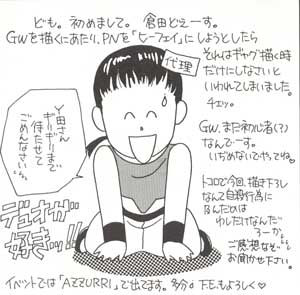 ども。初めまして。倉田どえーす。
GWを描くにあたり、PNを「ヒーフェイ」にしようとしたら
それはギャグ描く時
だけにしなさいと
いわれてしまいました。
チェッ。
代理
Y田さん
ギリギリまで
待たせて
ごめんなさい
GW、まだ初心者(?)
なんでーす。
いぢめないでやってね
デュオが
好きッ!!
トコロで今回、描き下ろし
なんて自殺行為に
なんだのは
わしだけなんだ
ろーか。
ご感想など
お聞かせ下さい。
イベントでは「AZZURRI」で出てます。多分 F.E.もよろしく